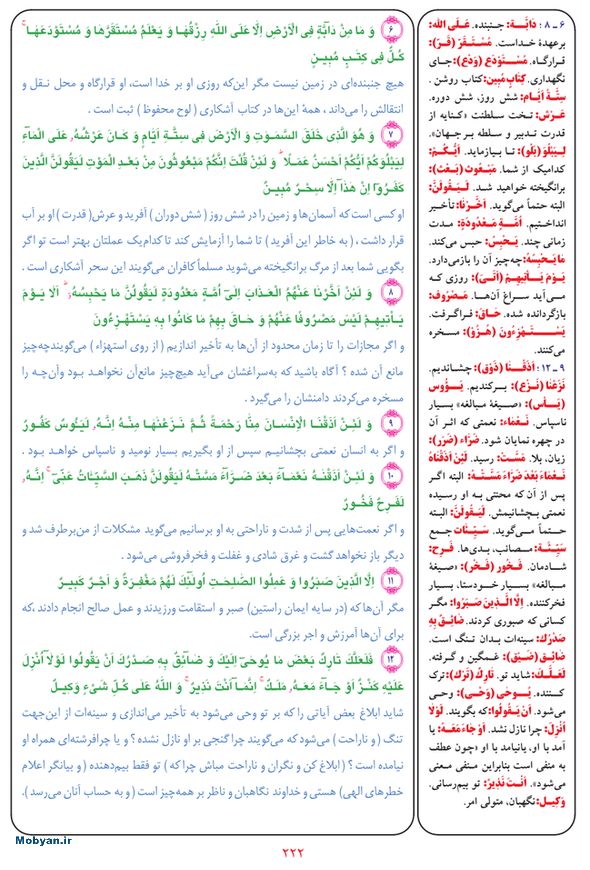 ۶ وَ مَا مِنْ دَآبَّةٍ فِی الْاَرْضِ اِلَّا عَلَی اللّٰهِ رِزْقُهَا وَ یَعْلَمُ مُسْتَقَرَّهَا وَ مُسْتَوْدَعَهَا ۚ
کُلٌّ فِی کِتٰبٍ مُبِینٍ
هیچ جنبنده‌ای در زمین نیست مگر این‌که روزی او بر خدا است، او قرارگاه و محل نقل و
انتقالش را می‌داند ، همهٔ این‌ها در کتاب آشکاری ( لوح محفوظ ) ثبت است .
۷ وَ هُوَ الَّذِی خَلَقَ السَّمٰوٰتِ وَ الْاَرْضَ فِی سِتَّةِ اَیَّامٍ وَ کَانَ عَرْشُهُ عَلَی الْمَآءِ
لِیَبْلُوَکُمْ اَیُّکُمْ اَحْسَنُ عَمَلًا ۗ وَ لَئِنْ قُلْتَ اِنَّکُمْ مَبْعُوثُونَ مِنْ بَعْدِ الْمَوْتِ لَیَقُولَنَّ الَّذِینَ
کَفَرُوٓا اِنْ هٰذَآ اِلَّا سِحْرٌ مُبِینٌ
او کسی است که آسمان‌ها و زمین را در شش روز ( شش دوران ) آفرید و عرش ( قدرت ) او بر آب
قرار داشت ، ( به خاطر این آفرید ) تا شما را آزمایش کند تا کدام‌یک عملتان بهتر است تو اگر
بگویی شما بعد از مرگ برانگیخته می‌شوید مسلماً کافران می‌گویند این سحر آشکاری است .
۸ وَ لَئِنْ اَخَّرْنَا عَنْهُمُ الْعَذَابَ اِلٰٓی اُمَّةٍ مَعْدُودَةٍ لَیَقُولُنَّ مَا یَحْبِسُهُ ۗ اَلَا یَوْمَ
یَاْتِیهِمْ لَیْسَ مَصْرُوفًا عَنْهُمْ وَ حَاقَ بِهِمْ مَا کَانُوا بِهِ یَسْتَهْزِءُونَ
و اگر مجازات را تا زمان محدود از آن‌ها به تأخیر اندازیم ( از روی استهزاء ) می‌گویندچه‌چیز
مانع آن شده ؟ آگاه باشید که به‌سراغشان می‌آید هیچ‌چیز مانع‌آن نخواهـد بـود وآن‌چـه را
مسخره می‌کردند دامنشان را می‌گیرد .
۹ وَ لَئِنْ اَذَقْنَا الْاِنْسَانَ مِنَّا رَحْمَةً ثُمَّ نَزَعْنَهَا مِنْهُ اِنَّهُ لَیَئُوسٌ کَفُورٌ
و اگر به انسان نعمتی بچشانیـم سپس از او بگیریم بسیار نومید و ناسپاس خواهـد بـود .
۱۰ وَ لَئِنْ اَذَقْنٰهُ نَعْمَآءَ بَعْدَ ضَرَّآءَ مَسَّتْهُ لَیَقُولَنَّ ذَهَبَ السَّیِّئَاتُ عَنِّیٓ ۚ اِنَّهُ
لَفَرِحٌ فَخُورٌ
و اگر نعمت‌هایی پس از شدت و ناراحتی به او برسانیم می‌گوید مشکلات از من‌برطرف شد و
دیگر باز نخواهد گشت و غرق شادی و غفلت و فخرفروشی می‌شود .
۱۱ اِلَّا الَّذِینَ صَبَرُوا وَ عَمِلُوا الصّٰلِحٰتِ اُولٰٓئِکَ لَهُمْ مَغْفِرَةٌ وَ اَجْرٌ کَبِیرٌ
مگر آن‌ها که ( در سایه ایمان راستین ) صبر و استقامت ورزیدند و عمل صالح انجام دادند ،که
برای آن‌ها آمرزش و اجر بزرگی است.
۱۲ فَلَعَلَّکَ تَارِکٌ بَعْضَ مَا یُوحٰٓی اِلَیْکَ وَ ضَآئِقٌ بِهِ صَدْرُکَ اَنْ یَقُولُوا لَوْلَآ اُنْزِلَ
عَلَیْهِ کَنْزٌ اَوْ جَآءَ مَعَهُ مَلَکٌ ۚ اِنَّمَآ اَنْتَ نَذِیرٌ ۚ وَ اللّٰهُ عَلٰی کُلِّ شَیْءٍ وَکِیلٌ
شاید ابلاغ بعض آیاتی را که بر تو وحی می‌شود به تأخیر می‌اندازی و سینه‌ات از این‌جهت
تنگ ( و ناراحت ) می‌شود که می‌گویند چرا گنجی بر او نازل نشده ؟ و یا چرافرشته‌ای همراه او
نیامده است ؟ ( ابلاغ کن و نگران و ناراحت مباش چرا که ) تو فقط بیم‌دهنده ( و بیانگر اعلام
خطرهای الهی) هستی و خداوند نگاهبان و ناظر بر همه‌چیز است ( و به حساب آنان می‌رسد ).
۶ ـ ۸ : دَابَّـة: جنبنده. عَـلَی اللّه:
برعهدهٔ خداست. مُسْتَقَرّ (قَرّ):
قرارگاه. مُسْتَوْدَع (وَدَع): جـای
نگهداری. کِتابٍ مُبین: کتاب روشن .
سِتَّةِ اَیّام: شش روز، شش دوره.
عَـرْش: تخت سلطنت «کنایه از
قدرت تدبیر و سلطه بر جهان».
لِیَبْلُوَ (بَلْو): تا بیازماید. اَیُّکُمْ:
کدامیک از شما. مَبْعُوث (بَعْث):
برانگیخته خواهید شد. لَیَقُولَنَّ:
البته حتماً می‌گوید. اَخَّرْنا: تأخیر
انداختیم. اُمَّـةٍ مَعْدُودَةٍ: مـدت
زمانی چند. یَحْبِسُ: حبس می‌کند.
مَا یَحْبِسُهُ: چه‌چیز آن را بازمی‌دارد.
یَوْمَ یَأْتیهِمْ (اَتْی): روزی که
مـی‌آید سـراغ آن‌هـا. مَصْرُوف:
بازگردانده شده. حاقَ: فراگرفت.
یَسْتَهْزِءُونَ (هُزْو): مسخره
می‌کنند.
۹ ـ ۱۲ : اَذَقْـنـا (ذَوْق): چشاندیم.
نَزَعْنا (نَزْع): برکندیم. یَـؤُوس
(یَـأْس): «صیغهٔ مبالغه» بسیار
ناسپاس. نَعْماء: نعمتی که اثـر آن
در چهره نمایان شود. ضَرّاء (ضَرَر):
زیان، بلا. مَسَّتْ: رسید. لَئِنْ اَذَقْناهُ
نَعْمـاءَ بَعْدَ ضَرّاءَ مَسَّتْهُ: البته اگر
پس از آن که محنتی به او رسیده
نعمتی بچشانیمش. لَیَقُولَنَّ: البته
حتماً می‌گوید. سَیِّئات جمع
سَیِّئَة: مصائب، بدی‌ها. فَرِح:
شادمان. فَخُور (فَخْر): «صیغهٔ
مبالغه» بسیار خودستا، بسیار
فخرکننده. اِلاَّ الَّـذینَ صَبَرُوا: مگـر
کسانی که صبوری کردند. ضائِقٌ بِهِ
صَدْرُكَ: سینه‌ات بدان تنگ است.
ضائِق (ضَیْق): غمگین و گرفته.
لَعَلَّـكَ: شاید تو. تارِك (تَرْك): ترک
کننده. یُـوحی (وَحْی): وحی
می‌شود. اَنْ یَقُولُوا: که بگویند. لَوْلا
اُنْزِلَ: چرا نازل نشد. اَوْ جاءَ مَعَهُ: یا
آمد با او، یانیامد با او «چون عطف
به منفی است بنابراین منفی معنی
می‌شود». اَنْتَ نَذیرٌ: تو بیم‌رسانی.
وَکیل: نگهبان، متولی امر.
Mobyan.ir
۲۲۲